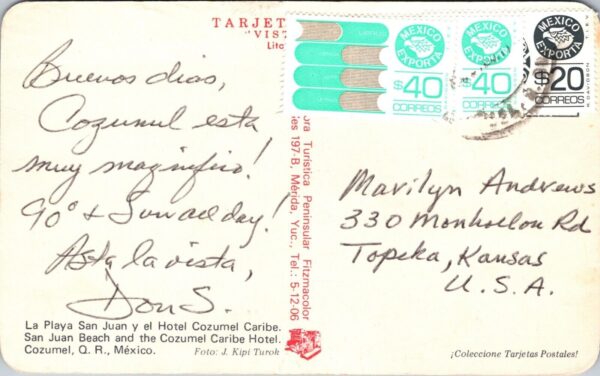 TARJET
"VIST
Lito
MEXICO EXPORTA
$40
CORREOS
MEXICO EXPORTA
$40
CORREOS
MEXICO EXPORTA
$20
CORREOS
R. DAVIDSON
Buenos dias,
Cozumel esta
muy magnifico!
90° & Sun all day!
Asta la vista,
Don S.
La Playa San Juan y el Hotel Cozumel Caribe.
San Juan Beach and the Cozumel Caribe Hotel.
Cozumel, Q. R., México.
Foto: J. Kipi Turok
ora Turística Peninsular Fitzmacolor
es 197-B, Mérida, Yuc., Tel.: 5-12-06
Marilyn Andrews
330 Rd
Topeka, Kansas
U.S.A.
¡Coleccione Tarjetas Postales!